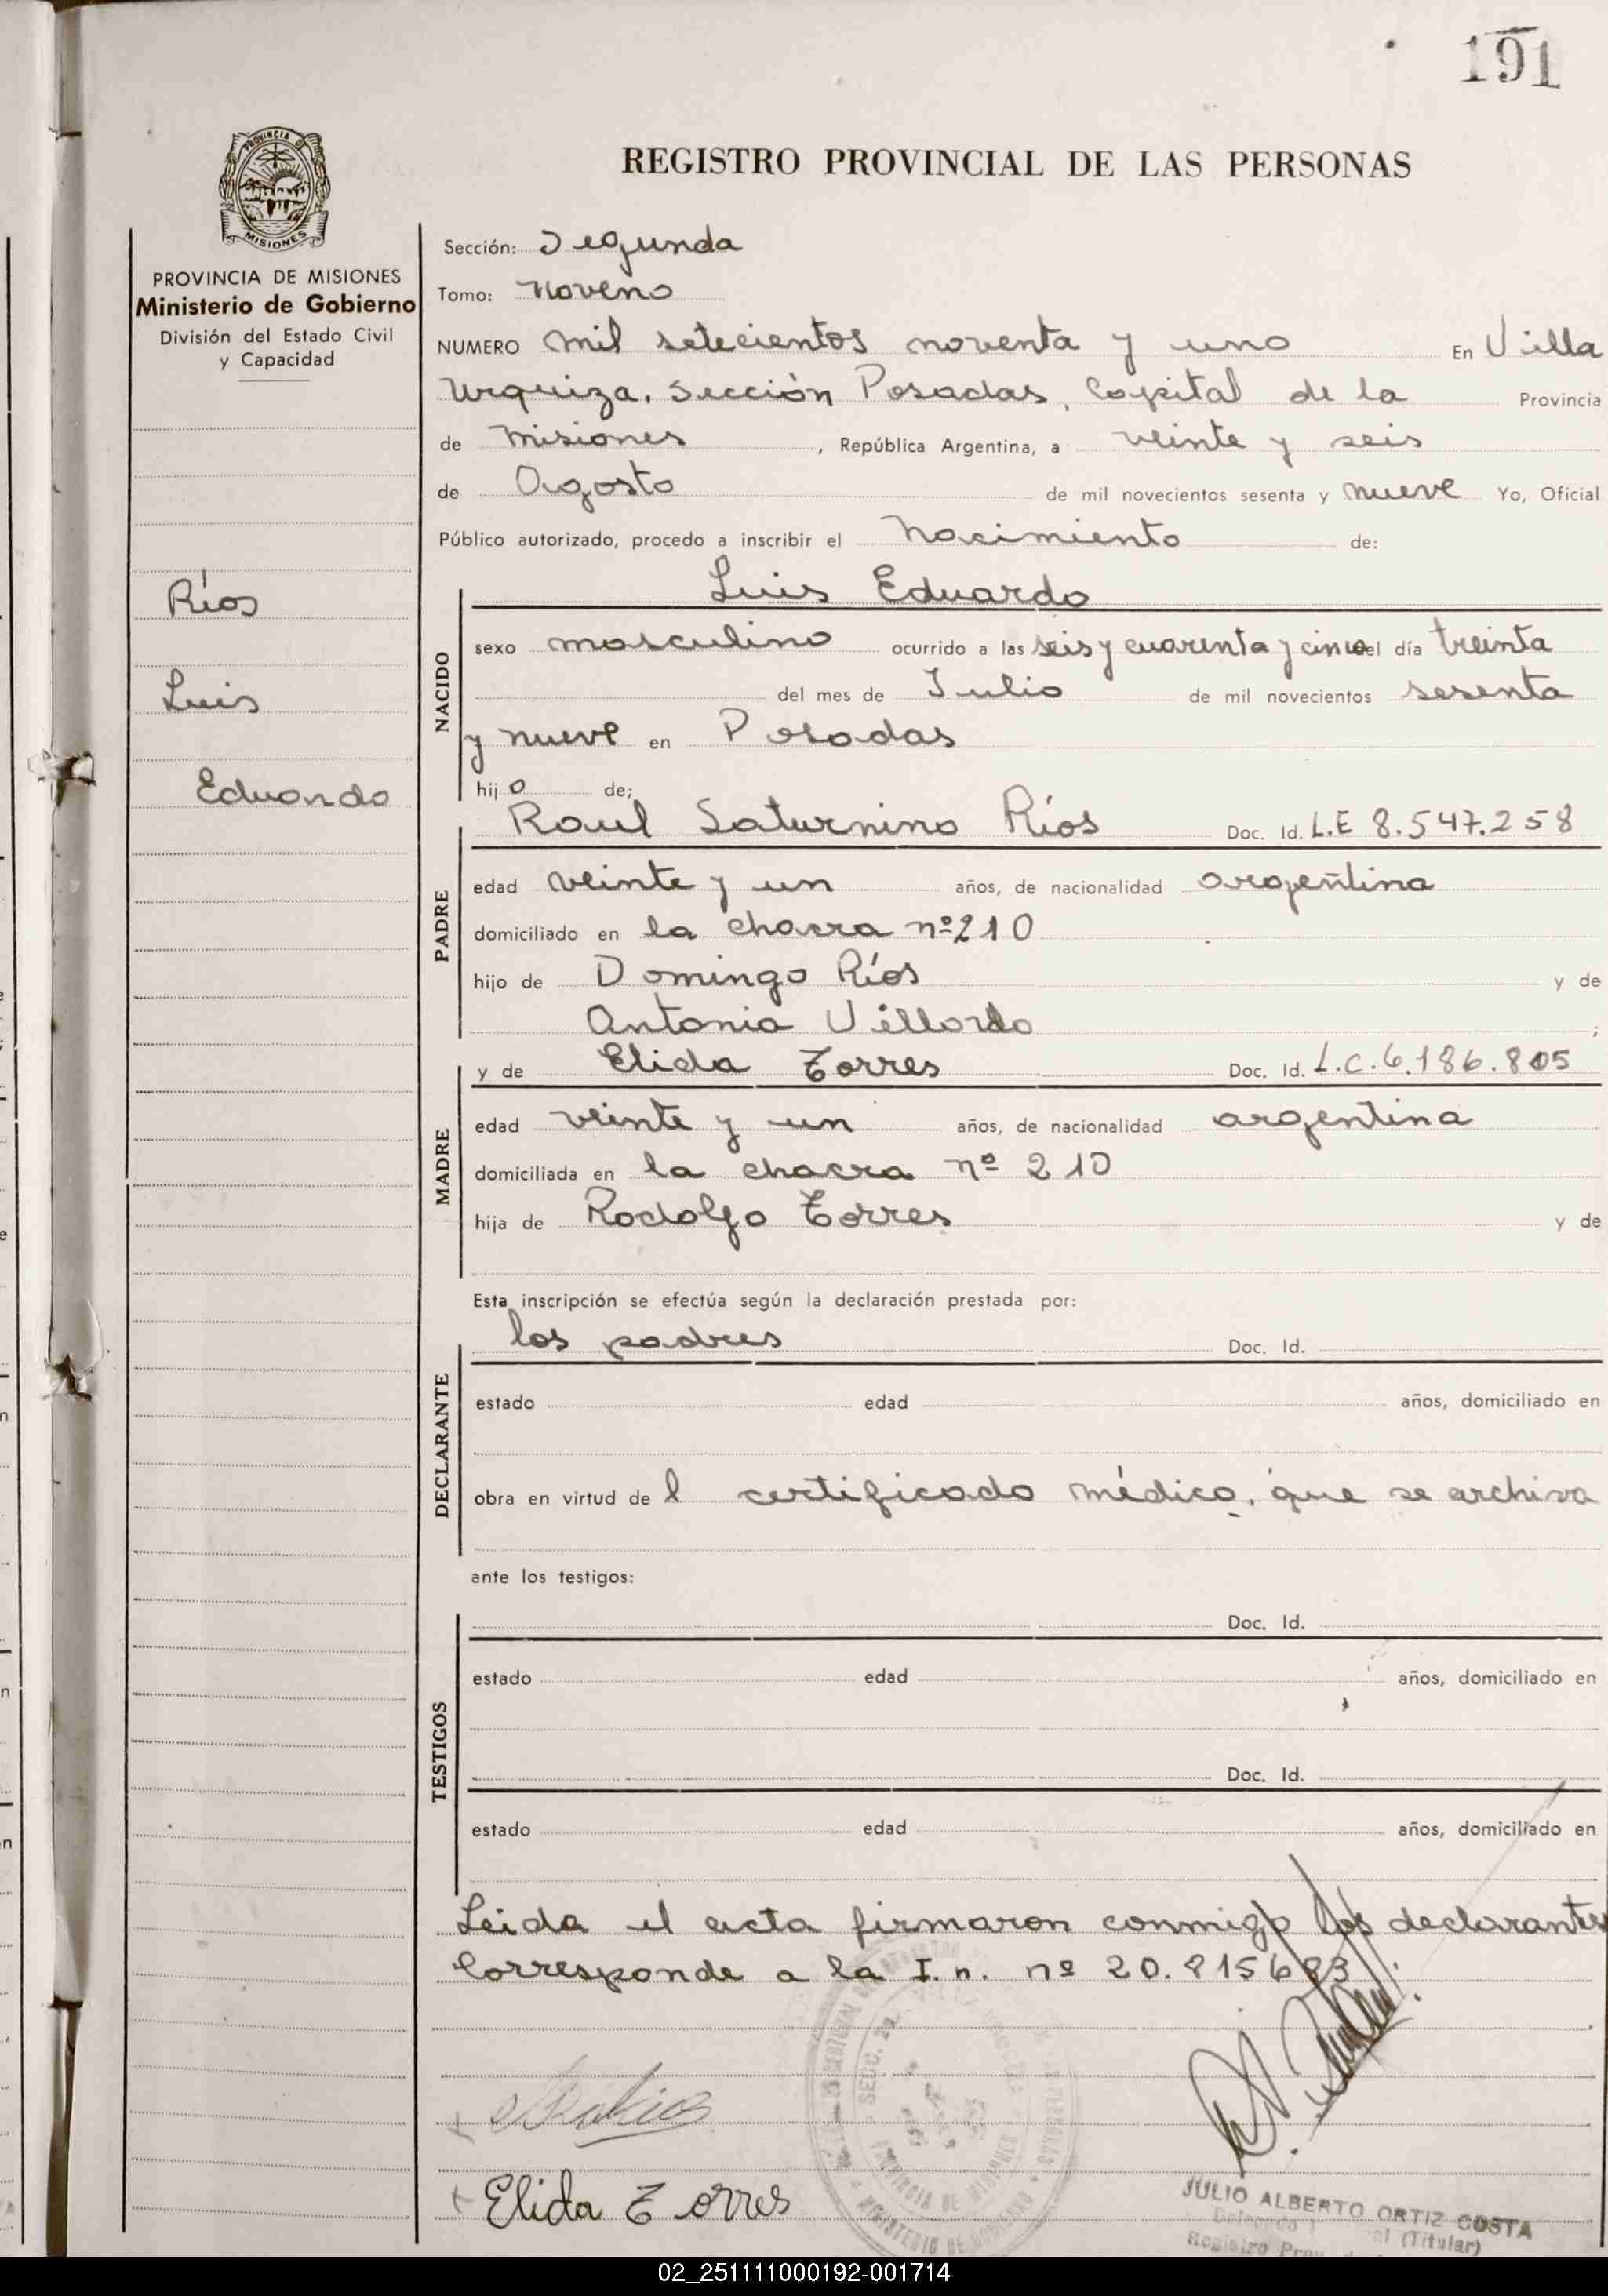 191
REGISTRO PROVINCIAL DE LAS PERSONAS
PROVINCIA DE
MISIONES
PROVINCIA DE MISIONES
Ministerio de Gobierno
División del Estado Civil
y Capacidad
Ríos
Luis
Eduardo
Sección: Segunda
Tomo: Noveno
NUMERO mil setecientos noventa y uno En Villa
Urquiza, Sección Posadas, Capital de la Provincia
de Misiones, República Argentina, a veinte y seis
de Agosto de mil novecientos sesenta y nueve Yo, Oficial
Público autorizado, procedo a inscribir el Nacimiento de:
Luis Eduardo
NACIDO
sexo masculino ocurrido a las seis y cuarenta y cinco del día treinta
del mes de Julio de mil novecientos sesenta
y nueve en Posadas
hijo de;
Raul Saturnino Ríos Doc. Id. L.E 8.547.258
PADRE
edad veinte y un años, de nacionalidad argentina
domiciliado en la chacra nº 210
hijo de Domingo Ríos y de
Antonia Villordo ;
y de Elida Torres Doc. Id. L.C. 6.186.805
MADRE
edad veinte y un años, de nacionalidad argentina
domiciliada en la chacra nº 210
hija de Rodolfo Torres y de
Esta inscripción se efectúa según la declaración prestada por:
los padres Doc. Id.
DECLARANTE
estado edad años, domiciliado en
obra en virtud del certificado médico, que se archiva
ante los testigos:
Doc. Id.
TESTIGOS
estado edad años, domiciliado en
Doc. Id.
estado edad años, domiciliado en
Leida el acta firmaron conmigo los declarantes
Corresponde a la I.n. nº
Elida Torres
JULIO ALBERTO ORTIZ COSTA
(Titular)
02_251111000192-001714